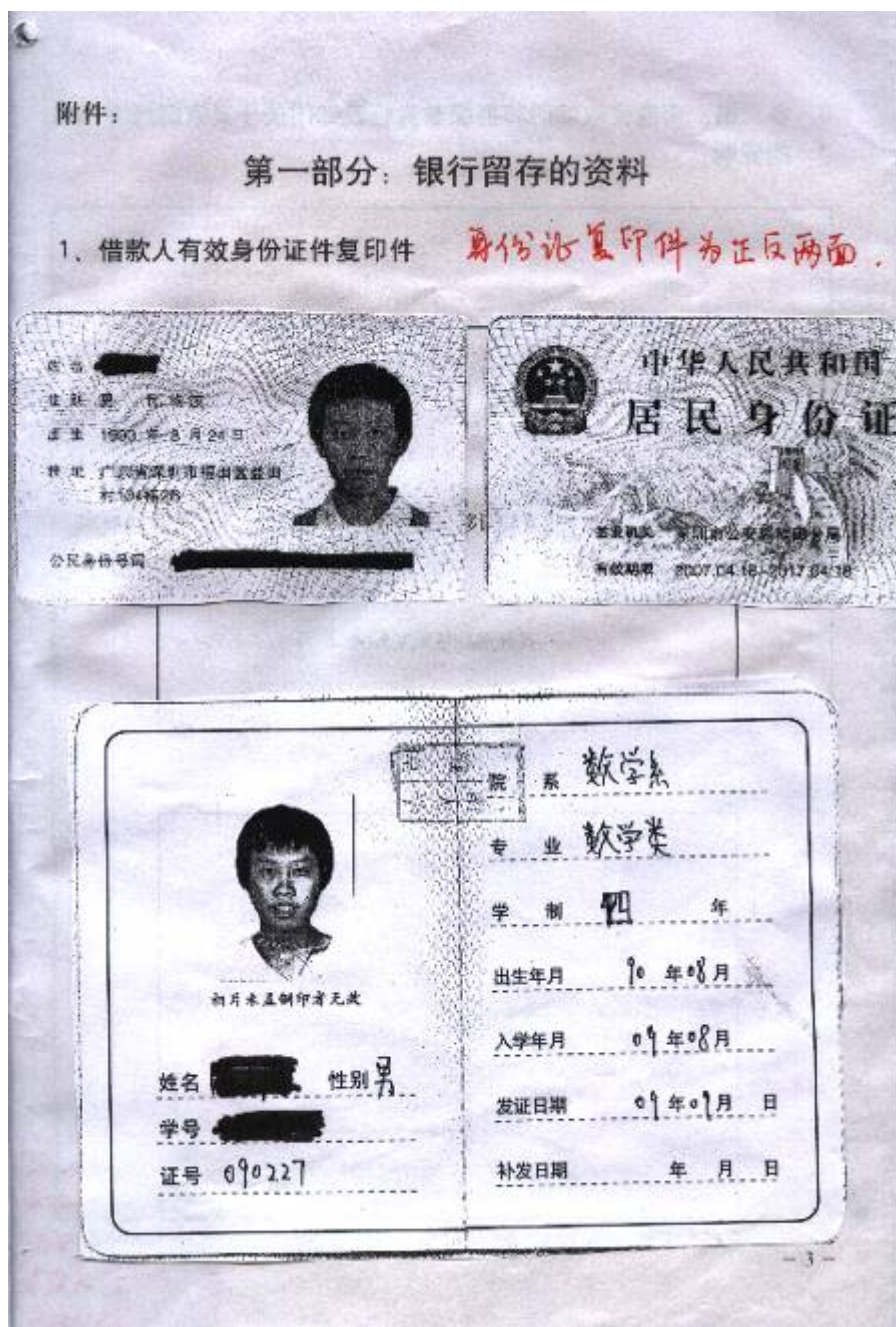 附件：
第一部分：银行留存的资料
1、借款人有效身份证件复印件 身份证复印件为正反两面．
姓名
性别 男 民族汉
出生 1990 年 8 月 24 日
住址 广东省深圳市福田区益田
村
公民身份号码
中华人民共和国
居民身份证
签发机关 深圳市公安局福田分局
有效期限 2007.04.18-2017.04.18
相片未盖钢印者无效
姓名 性别 男
学号
证号 090227
院 系 数学系
专 业 数学类
学 制 四 年
出生年月 90 年 08 月
入学年月 09 年 08 月
发证日期 09 年 09 月 日
补发日期 年 月 日
- 3 -